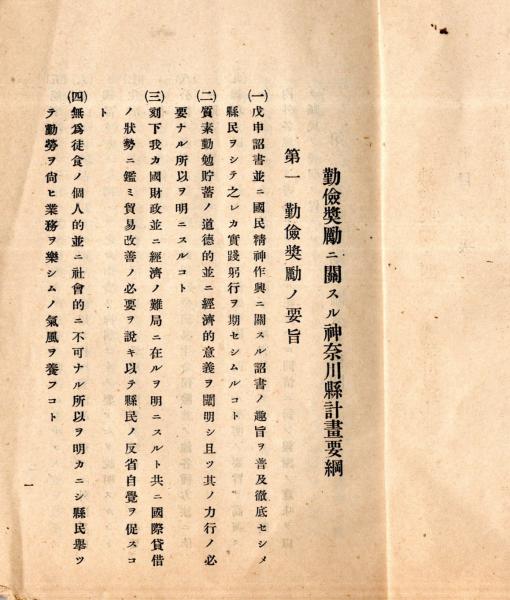 勤儉奬勵ニ關スル神奈川縣計畫要綱
第一　勤儉奬勵ノ要旨
㈠戊申詔書並ニ國民精神作興ニ關スル詔書ノ趣旨ヲ普及徹底セシメ
縣民ヲシテ之レカ實踐躬行ヲ期セシムルコト
㈡質素勤勉貯蓄ノ道德的並ニ經濟的意義ヲ闡明シ且ツ其ノ力行ノ必
要ナル所以ヲ明ニスルコト
㈢刻下我カ國財政並ニ經濟ノ難局ニ在ルヲ明ニスルト共ニ國際貸借
ノ狀勢ニ鑑ミ貿易改善ノ必要ヲ說キ以テ縣民ノ反省自覺ヲ促スコ
ト
㈣無爲徒食ノ個人的並ニ社會的ニ不可ナル所以ヲ明カニシ縣民擧ツ
テ勤勞ヲ尙ヒ業務ヲ樂シムノ氣風ヲ養フコト
一